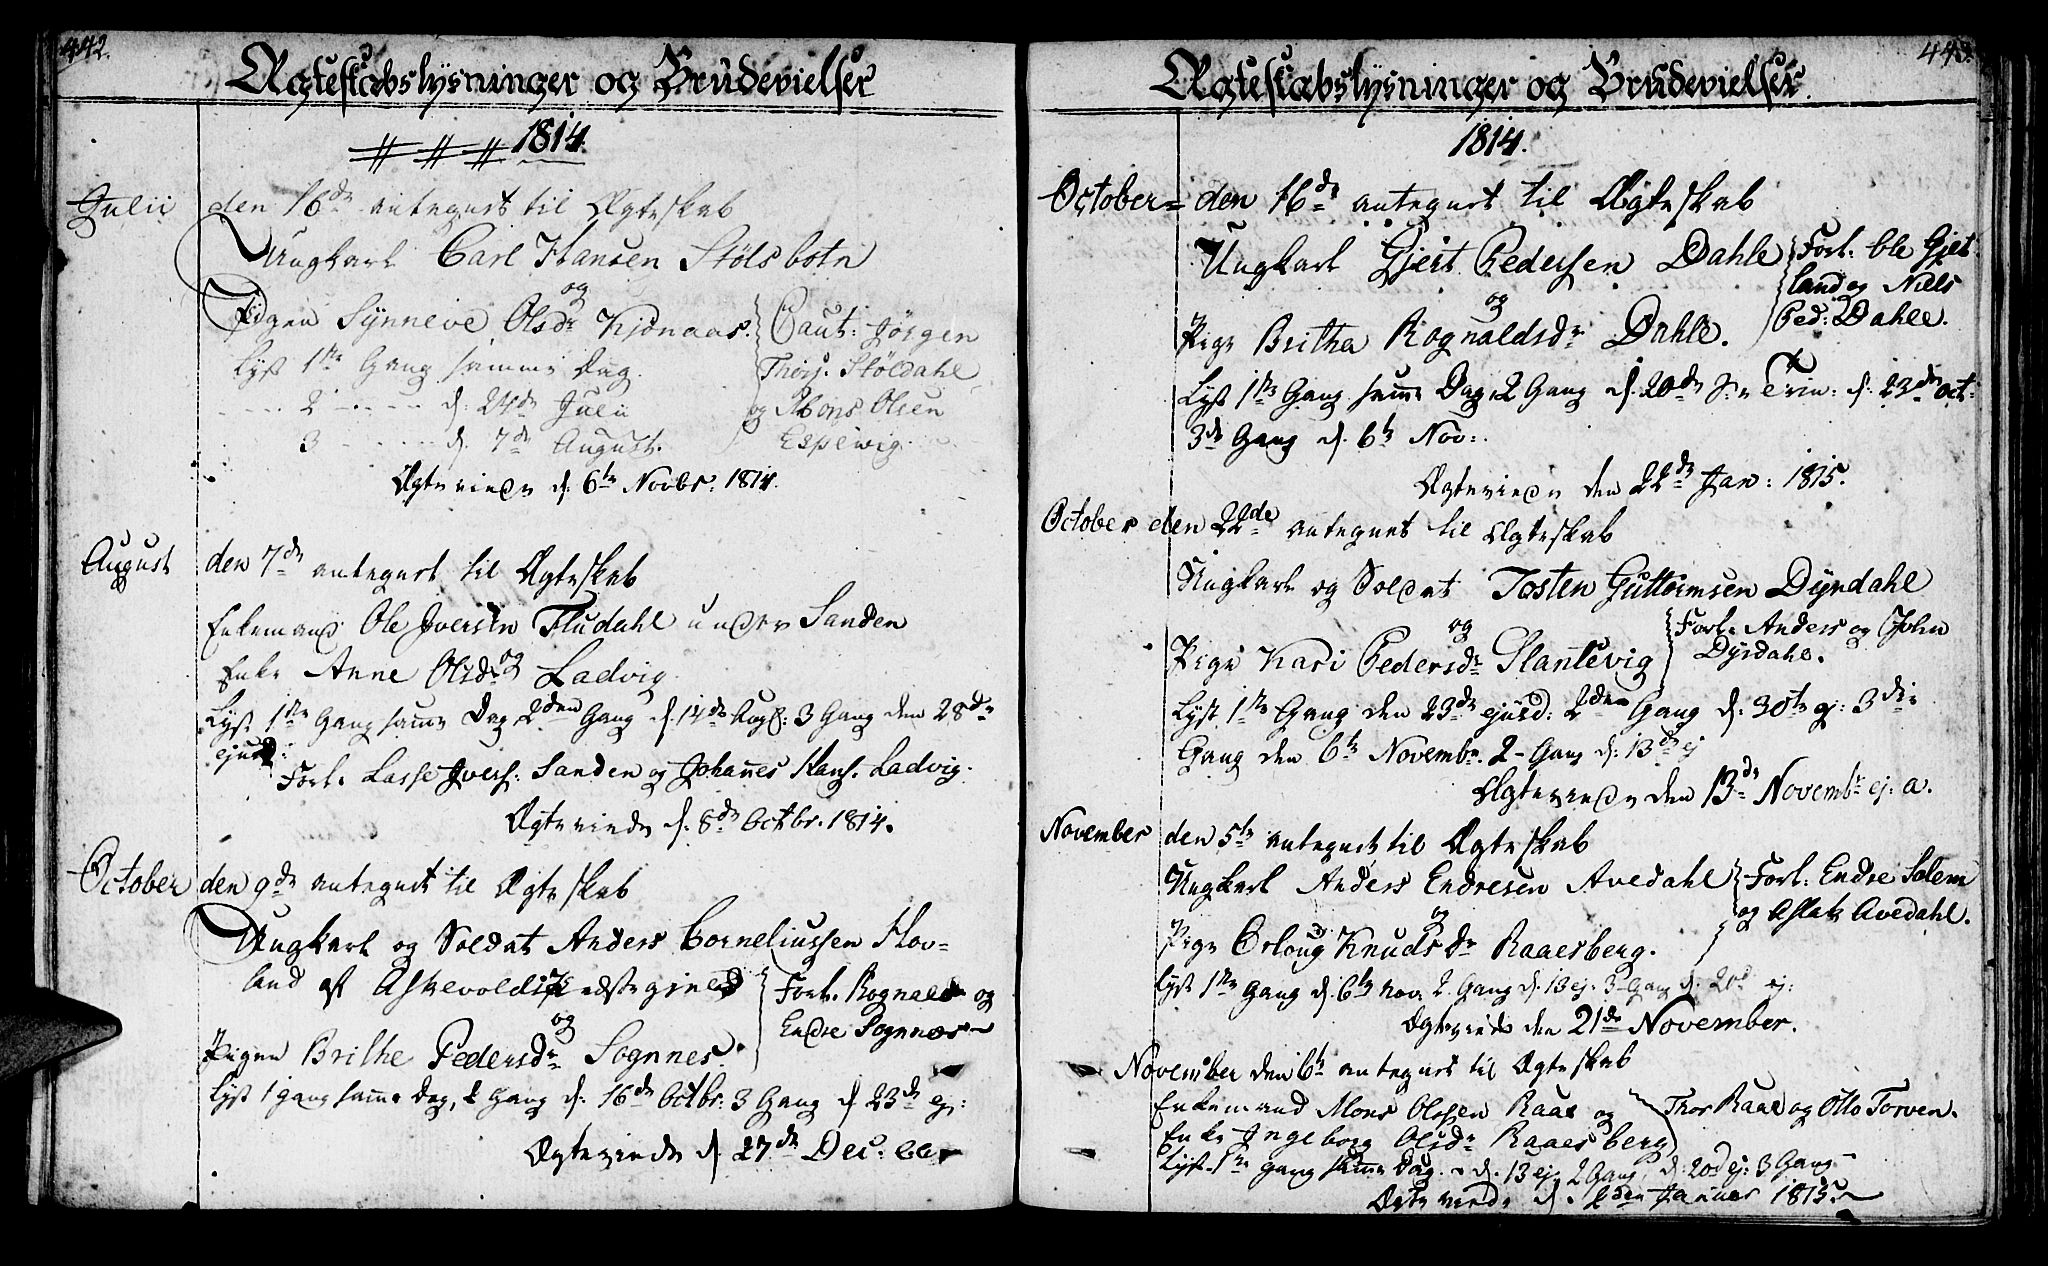 442.
Ægteskabslysninger og Brudevielser
1814.
Julii den 16de antegnet til Ægteskab
Ungkarl Carl Hansen Stölsbotn
og
Pigen Synneve Olsdr Kjönaas.
Caut: Jörgen
Thorj. Stöldahl
og Mons Olsen
Espevig.
Lyst 1ste Gang samme Dag.
2 - - - d. 24de Julii
3 - - - d. 7de August.
Ægteviede d. 6te Novbr. 1814.
August den 7de antegnet til Ægteskab
Enkemand Ole Iversen Fludahl under Sanden
og
Enke Anne Olsdr Ladvig
Lyst 1ste Gang samme Dag 2den Gang d. 14de Aug: 3 Gang den 28de
ejusd:
Forl. Lasse Ivers. Sanden og Johannes Hans. Ladvig.
Ægteviede d. 8de Octbr. 1814.
October den 9de antegnet til Ægteskab
Ungkarl og Soldat Anders Corneliussen Hov=
land af Askevolds Præstegield
og
Pigen Brithe Pedersdr Sognnes.
Forl. Rognald og
Endre Sognnes
Lyst 1 Gang samme Dag, 2 Gang d. 16de Octbr: 3 Gang d. 23de ej:
Ægteviede d. 27de Dec:
443.
Ægteskabslysninger og Brudevielser.
1814.
October= den 16de antegnet til Ægteskab
Ungkarl Gjert Pedersen Dahle
og
Pige Britha Rognaldsdr Dahle.
Forl. Ole Gjet
land og Niels
Ped: Dahle.
Lyst 1ste Gang samme Dag, 2 Gang d. 20de S. Trin: d. 23de Oct:
3de Gang d. 6te Nov:
Ægteviede den 22de Jan: 1815.
October den 22de antegnet til Ægteskab
Ungkarl og Soldat Josten Guttormsen Dyrdahl
og
Pige Kari Pedersdr Slantevig
Forl. Anders og John
Dyrdahl.
Lyst 1ste Gang den 23de ejusd: 2den Gang d: 30te ej: 3die
Gang den 6te Novembr. 2 - Gang d. 13de ej
Ægteviede den 13de Novembr ej: a.
November den 5te antegnet til Ægteskab
Ungkarl Anders Endresen Avedahl
og
Pige Orloug Knudsdr Raaesberg.
Forl. Endre Solem
og Aslak Avedahl.
Lyst 1ste Gang d. 6te Nov. 2. Gang d. 13 ej. 3- Gang d. 20d ej:
Ægteviede den 21de November.
November den 6te antegnet til Ægteskab
Enkemand Mons Olssen Raae og
Enke Ingeborg Olsdr Raaesberg
Thor Raae og Otto Torven.
Lyst 1ste Gang samme Dag d. 13 ej 2 Gang, d. 20d ej: 3 Gang
Ægteviede d. 2den Januar 1815.